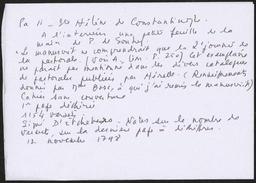 Pa 11 - Ste Hélène de Constantinople.
A l'intérieur une petite feuille de la
main de P. de
"Le manuscrit ne comprendrait que la 2e journée de
la pastorale. (Voir A. Lim. P. 250) Cet exemplaire
ne paraît pas mentionné dans les divers catalogues
de pastorales publiés par Hérelle. (Renseignements
donnés par Mme Bose, à qui j'ai remis le manuscrit)
Cahier sans couverture
1re page déchirée
1154 versets
Signé D'Etchebarne - Notes sur le nombre de
versets, sur la dernière page à déchiffrer.
12 novembre 1798